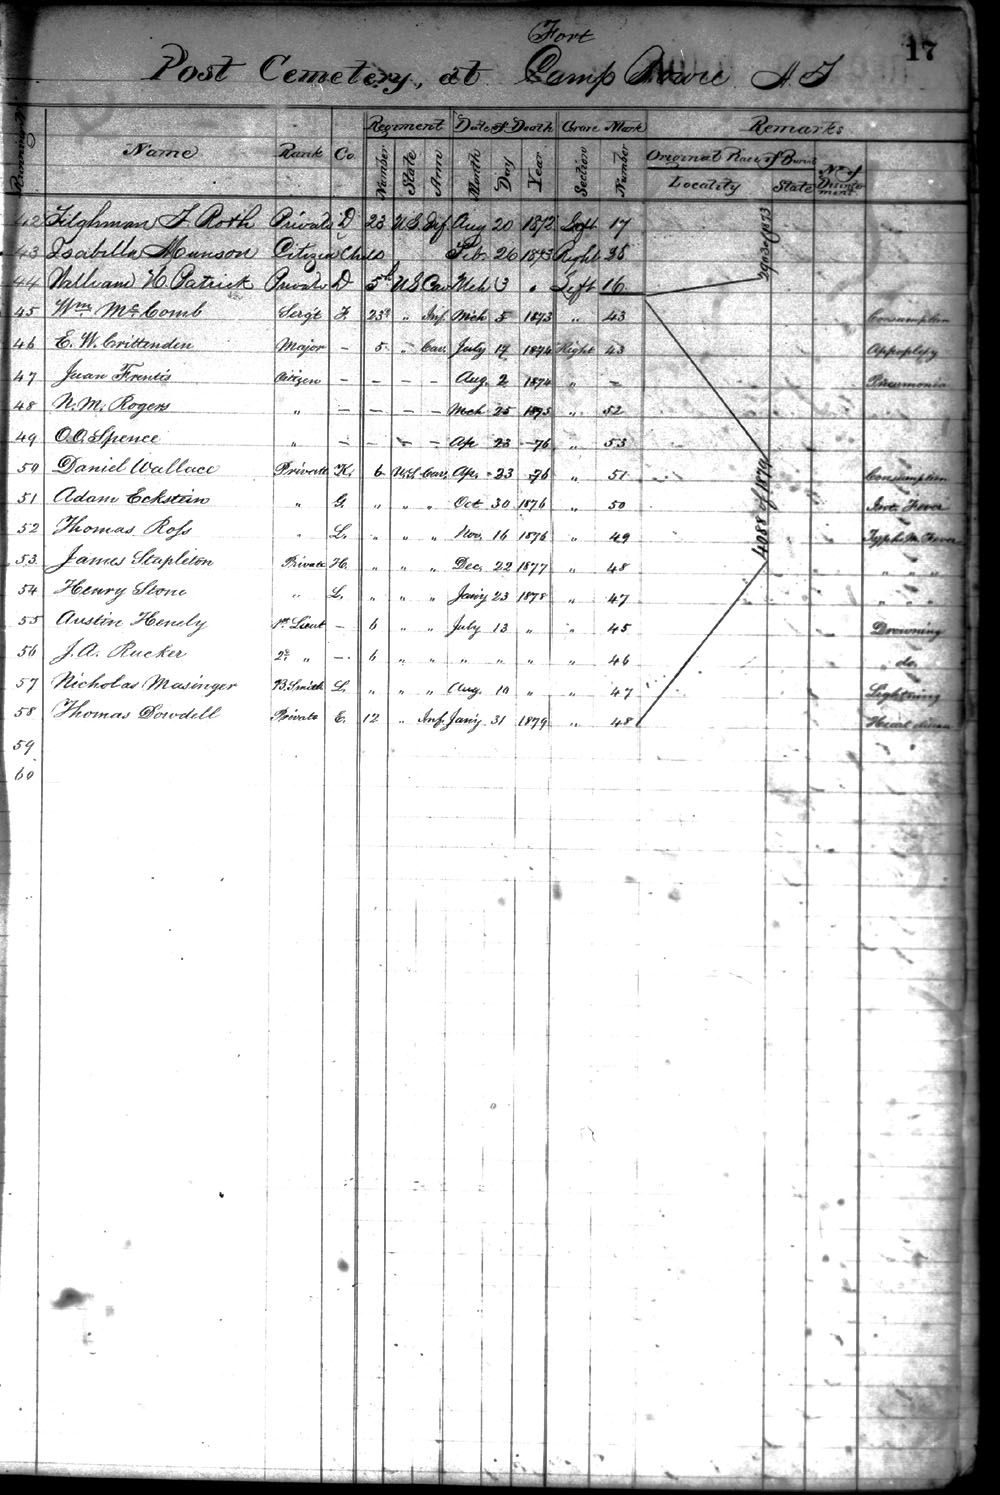 17
Fort
Post Cemetery, at Camp Bowie A. T.
Regiment Date of Death Grave Mark Remarks
Running No Name Rank Co. Number State Arm Month Day Year Section Number Original Place of Burial No of Disinterment
Locality State
42 Tilghman F. Roth Private D 23 U S Inf Aug 20 1872 Left 17
43 Isabella Munson Citizen Child Feb. 26 1873 Right 35
44 William H. Patrick Private D 5th U S Cav Mch 3 " Left 16
45 Wm McComb Sergt 23d " Inf. Mch 5 1873 " 43 Consumption
46 E. W. Crittenden Major — 5 " Cav. July 17 1874 Right 43 Appoplexy
47 Juan Frentis Citizen — — — — Aug. 2 1874 " — Pneumonia
48 N. M. Rogers " — — — — Mch 25 1875 " 52
49 O. O. Spence " — — — — Ap 23 —76 " 53
50 Daniel Wallace Private K. 6 U.S. Cav. Ap. 23 76 " 51 Consumption
51 Adam Eckstein " G. " " " Oct 30 1876 " 50 Int. Fever
52 Thomas Ross " L. " " " Nov. 16 1876 " 49 Typh. M. Fever
53 James Stapleton Private H. " " " Dec. 22 1877 " 48 " " "
54 Henry Stone " L. " " " Jany 23 1878 " 47 " " "
55 Austin Henely 1st Lieut — 6 " " July 13 " " 45 Drowning
56 J. A. Rucker 2d " — 6 " " " " " " 46 do.
57 Nicholas Masinger B. Smith L. " " " Aug. 10 " " 47 Lightning
58 Thomas Dowdell Private E. 12 " Inf. Jany. 31 1879 " 48 Heart disease
59
60
4088 of 1879